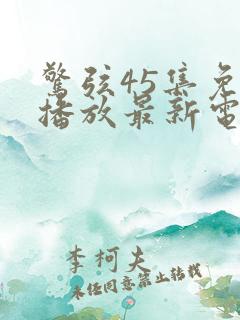 驚弦45集免
播放最新電
李柯夫
未经同意禁止转载